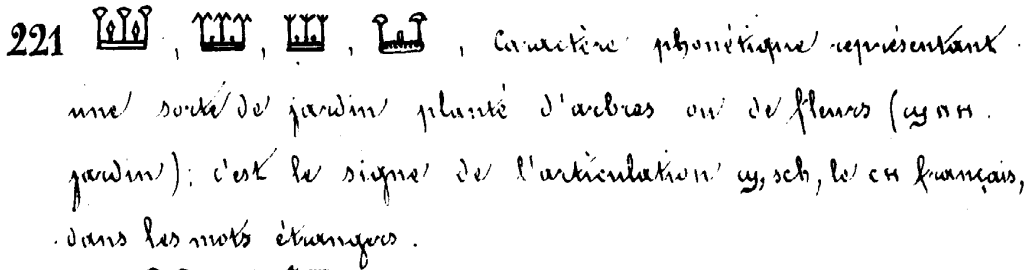 221 𓆷, 𓆷, 𓆷, 𓆷, Caractère phonétique représentant
une sorte de jardin planté d'arbres ou de fleurs (ϣⲛⲏ
jardin); c'est le signe de l'articulation ϣ, sch, le CH français,
dans les mots étrangers.